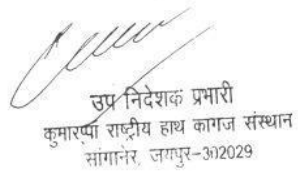 उप निदेशक प्रभारी
कुमारप्पा राष्ट्रीय हाथ कागज संस्थान
सांगानेर, जयपुर-302029